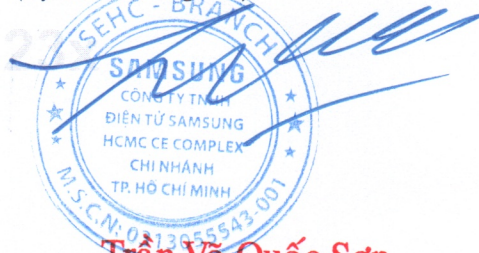 SEHC - BRANCH
SAMSUNG
CÔNG TY TNHH
ĐIỆN TỬ SAMSUNG
HCMC CE COMPLEX
CHI NHÁNH
TP. HỒ CHÍ MINH
M.S.C.N: 0313055543-001
Trần Võ Quốc Sơn